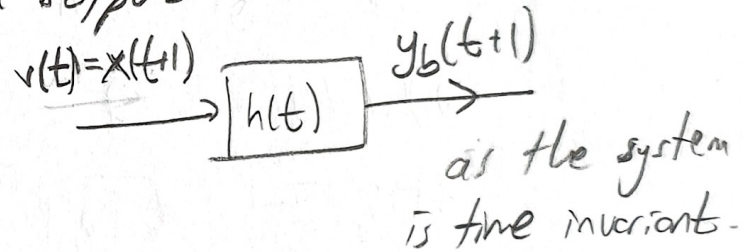 v(t)=x(t+1)
h(t)
y_b(t+1)
as the system
is time invariant.